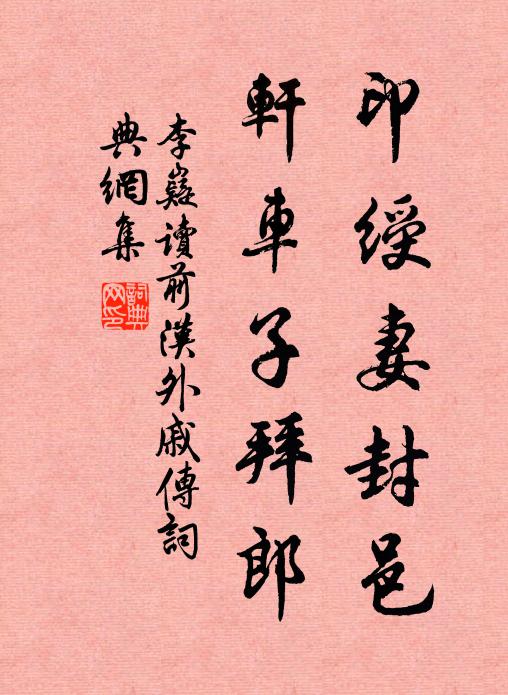 印綬妻封邑
軒車子拜郎
李嶷讀前漢外戚傳詞
典網集
詞典
网印